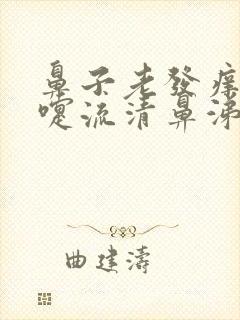 鼻子老發痒
嚏流清鼻涕
曲建濤